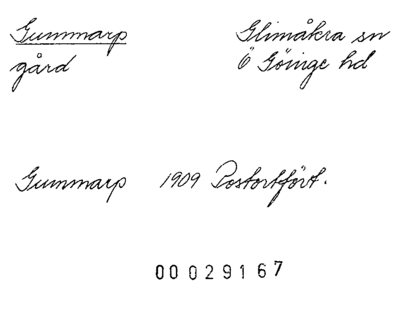 Gummarp Glimåkra sn
gård Ö Göinge hd
Gummarp 1909 Postortfört.
00029167